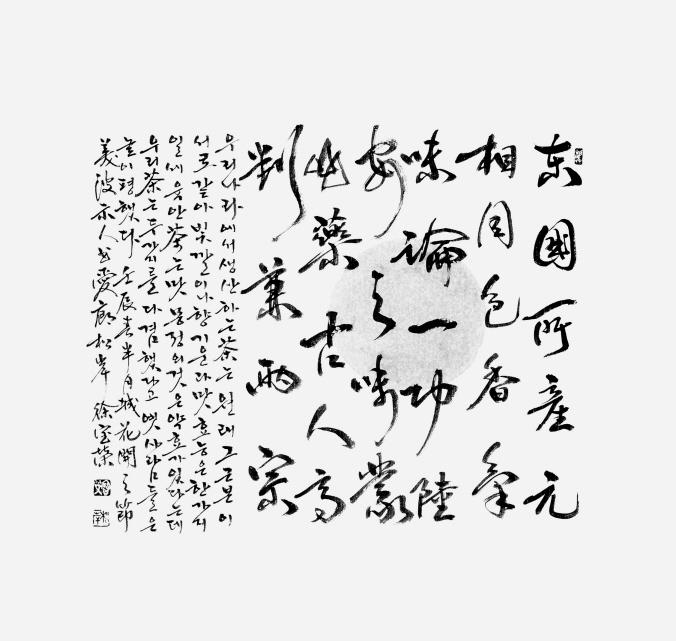 东國所産元
相同色香氣
味論一功陸
安之味蒙
山藥古人高
判兼兩宗
우리나라에서 생산하는 茶는 원래 그 근본이
서로 같아 빛깔이나 향기 운과 맛 효능은 한가지
일세 육안 茶는 맛 몽정의 것은 약효가 있다는데
우리 茶는 두가지를 다 겸했다고 옛사람들은
높이 평했다 壬辰春半月城花開之節
人 松岸 徐